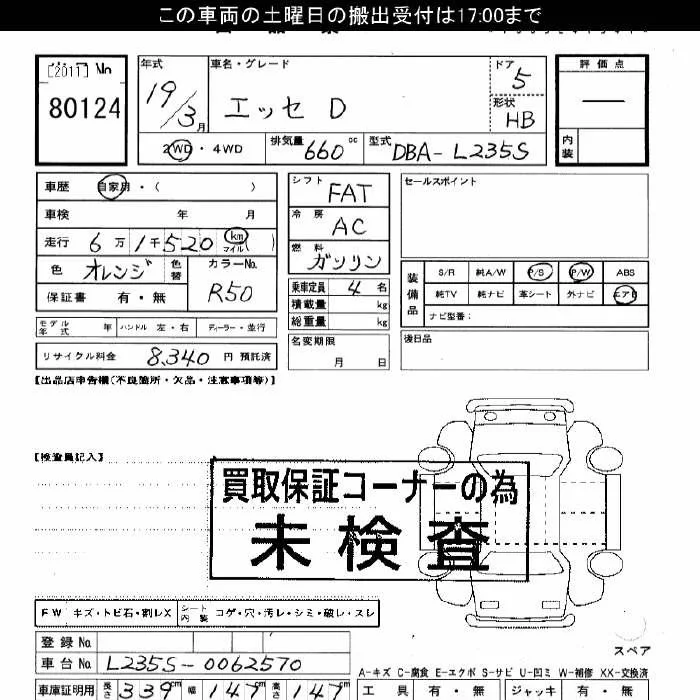 この車両の土曜日の搬出受付は17:00まで
[2011] No
80124
年式 19/3月
車名・グレード エッセ D
ドア 5
形状 HB
評価点 ―
内装
2WD・4WD 排気量 660cc 型式 DBA-L235S
車歴 自家用・( )
車検 年 月
走行 6万1千520 km マイル( )
色 オレンジ 色替 カラーNo. R50
保証書 有・無
モデル年式 年 ハンドル 左・右 ディーラー・並行
リサイクル料金 8,340 円 預託済
シフト FAT
冷房 AC
燃料 ガソリン
乗車定員 4 名
積載量 kg
総重量 kg
名変期限 月 日
セールスポイント
装備品 S/R 純A/W P/S P/W ABS
純TV 純ナビ 革シート 外ナビ エアB
ナビ型番:
後日品
【出品店申告欄(不良箇所・欠品・注意事項等)】
【検査員記入】
買取保証コーナーの為
未検査
FW キズ・トビ石・割レX シート内装 コゲ・穴・汚レ・シミ・破レ・スレ
登録 No
車台 No L235S-0062570
車庫証明用 長さ 339cm 幅 147cm 高さ 147cm
スペア
A-キズ C-腐食 E-エクボ S-サビ U-凹ミ W-補修 XX-交換済
工具 有・無 ジャッキ 有・無